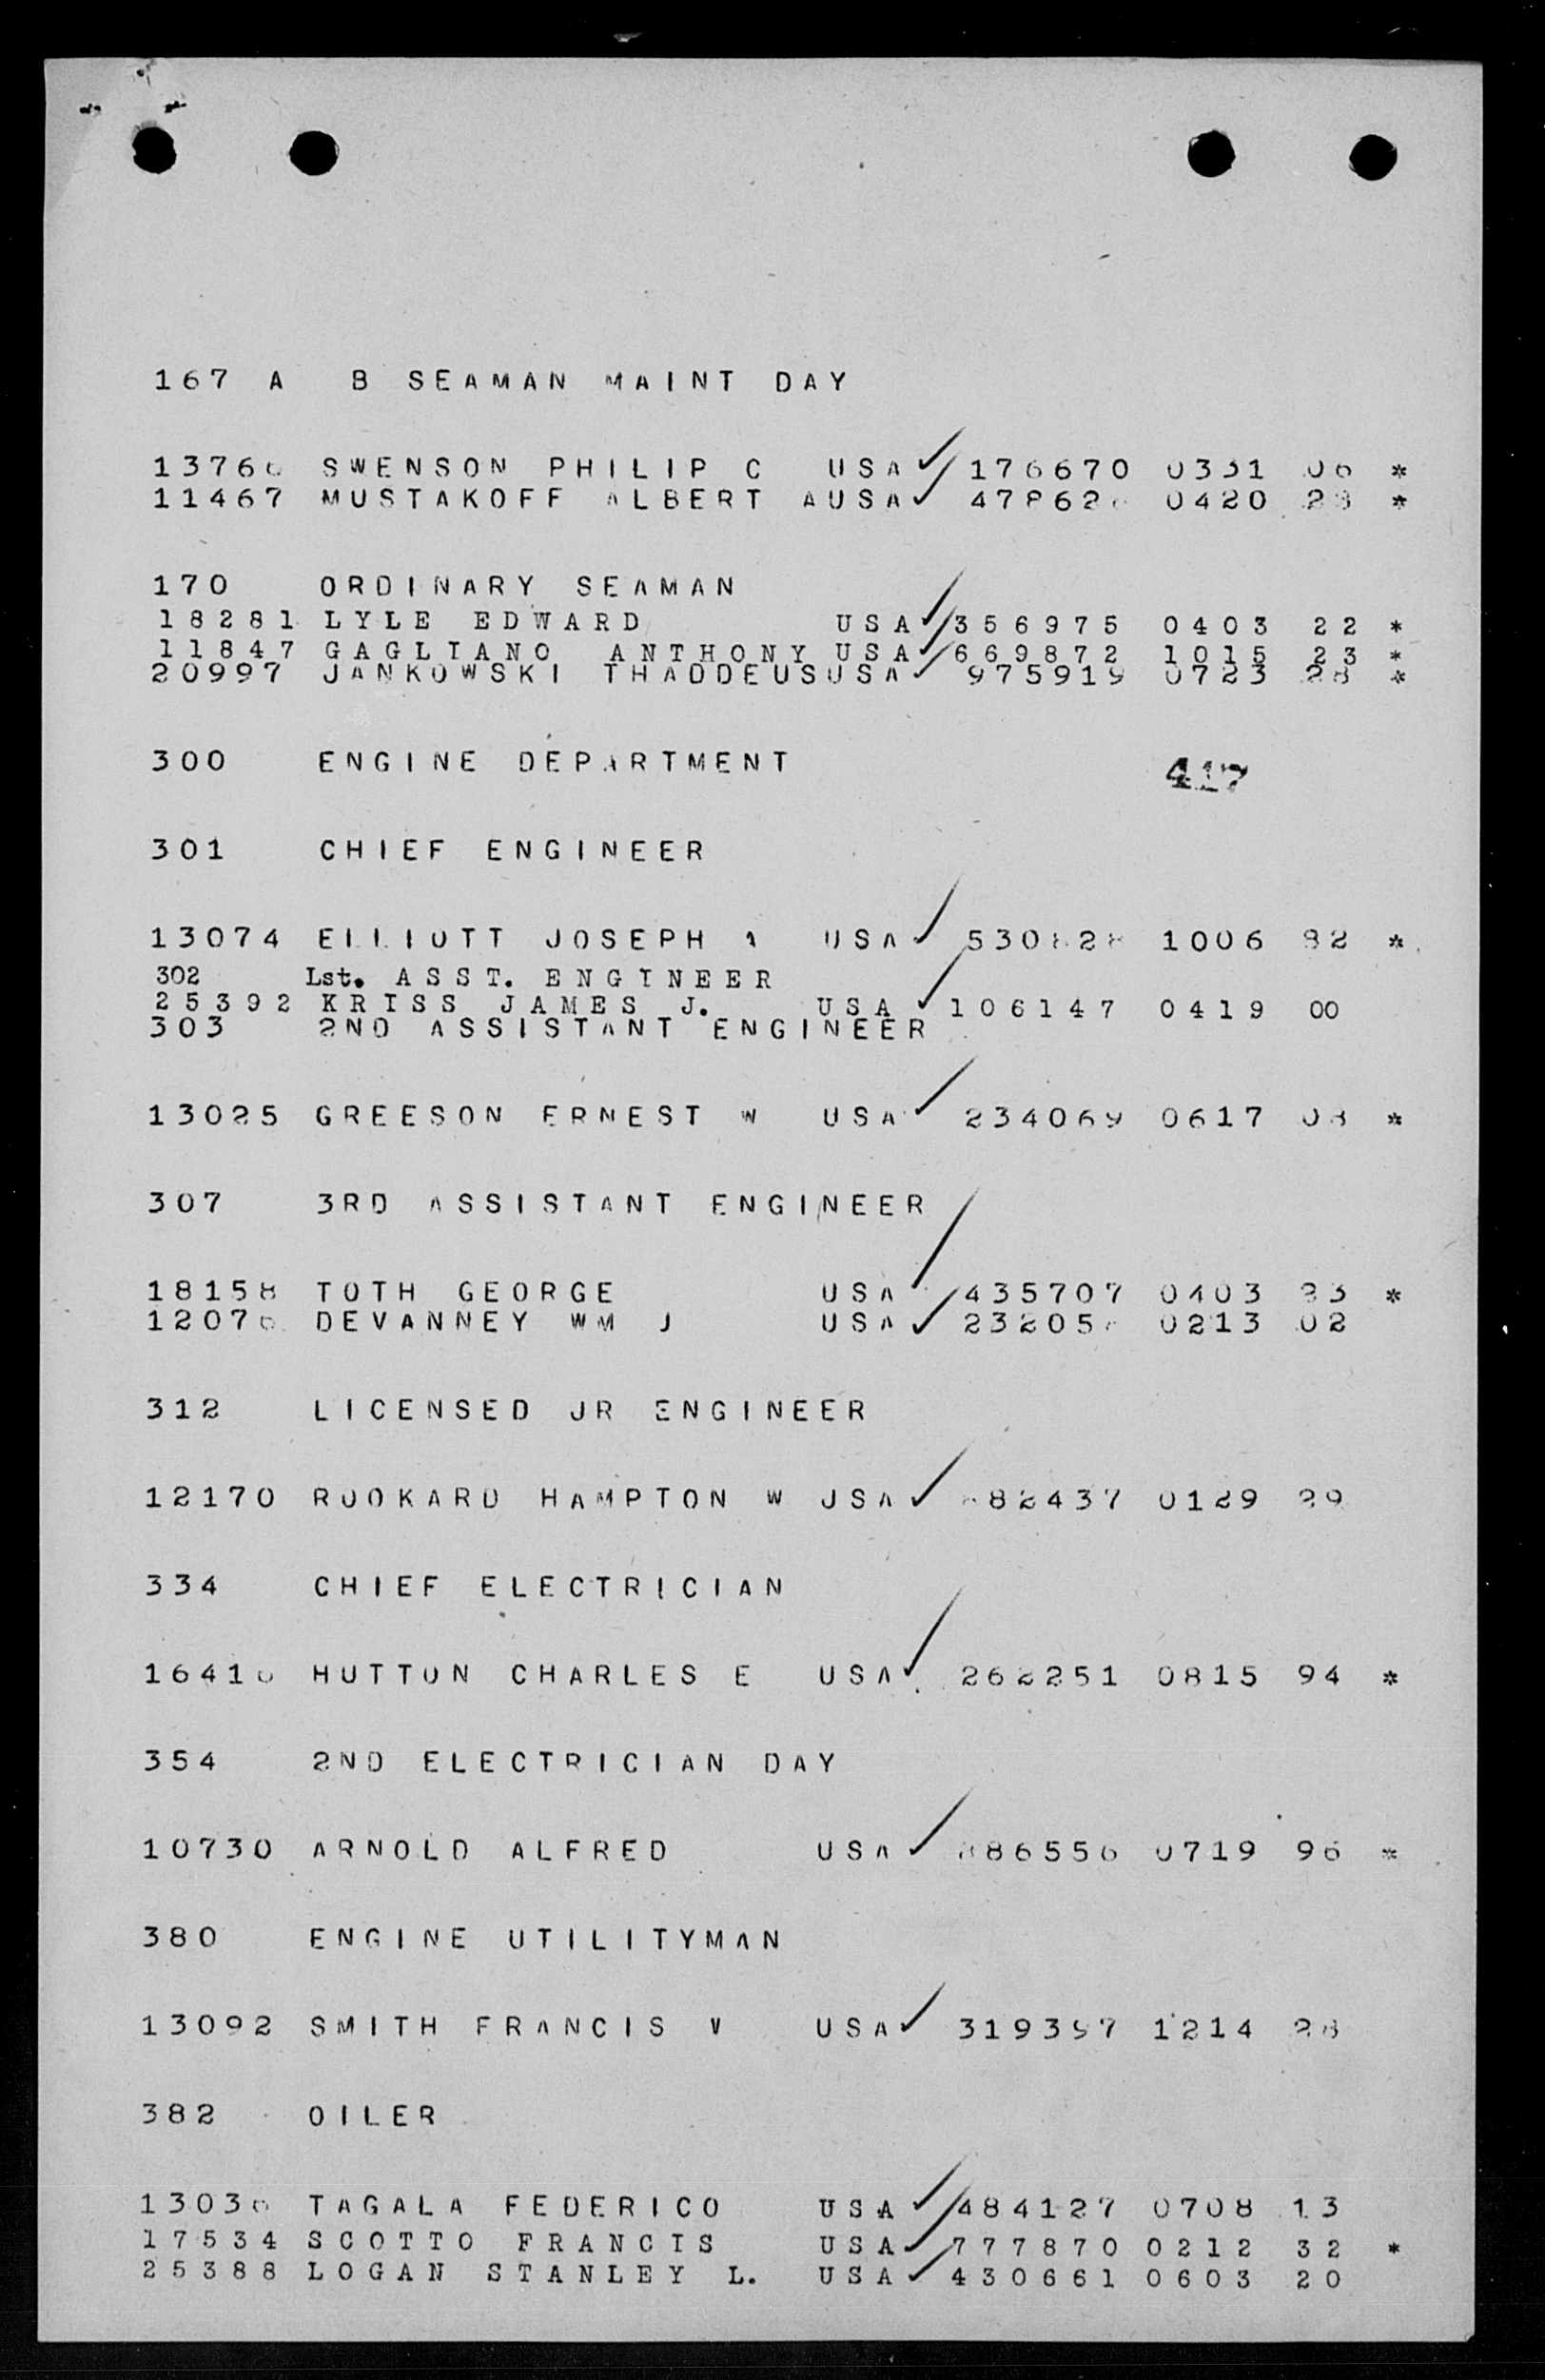 167 A B SEAMAN MAINT DAY
SWENSON PHILIP C USA 176670 0331 06 *
11467 MUSTAKOFF ALBERT A USA 0420 *
170 ORDINARY SEAMAN
18281 LYLE EDWARD USA 356975 0403 22 *
11847 GAGLIANO ANTHONY USA 669872 1015 23 *
20997 JANKOWSKI THADDEUS USA 975919 0723 28 *
300 ENGINE DEPARTMENT
417
301 CHIEF ENGINEER
13074 ELLIOTT JOSEPH USA 1006 *
302 Lst. ASST. ENGINEER
25392 KRISS JAMES J. USA 106147 0419 00
303 2ND ASSISTANT ENGINEER
13025 GREESON ERNEST W USA 234069 0617 *
307 3RD ASSISTANT ENGINEER
18158 TOTH GEORGE USA 435707 0403 23 *
DEVANNEY WM J USA 0213 02
312 LICENSED JR ENGINEER
12170 ROOKARD HAMPTON W USA 0129 29
334 CHIEF ELECTRICIAN
HUTTON CHARLES E USA 262251 0815 94 *
354 2ND ELECTRICIAN DAY
10730 ARNOLD ALFRED USA 0719 96 *
380 ENGINE UTILITYMAN
13092 SMITH FRANCIS V USA 319397 1214 28
382 OILER
TAGALA FEDERICO USA 484127 0708 13
17534 SCOTTO FRANCIS USA 777870 0212 32 *
25388 LOGAN STANLEY L. USA 430661 0603 20